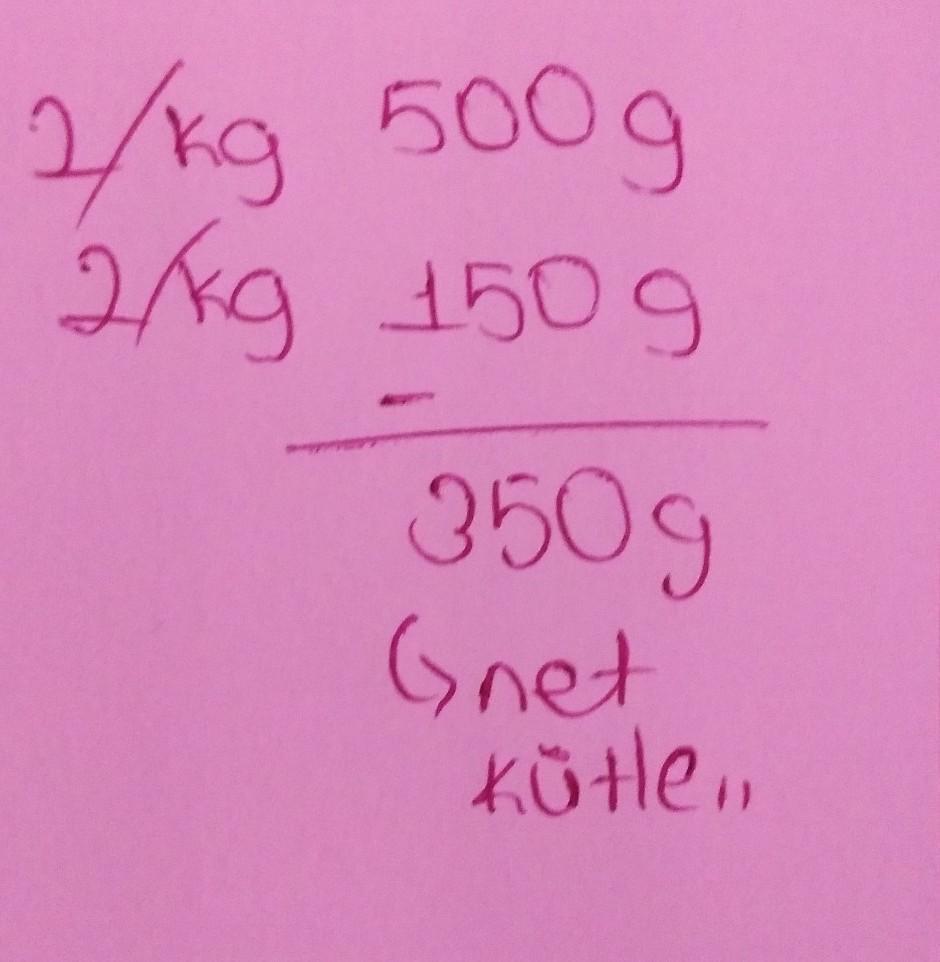 2/kg 500g
2/kg 150g
-
350g
↳net
kütle,,